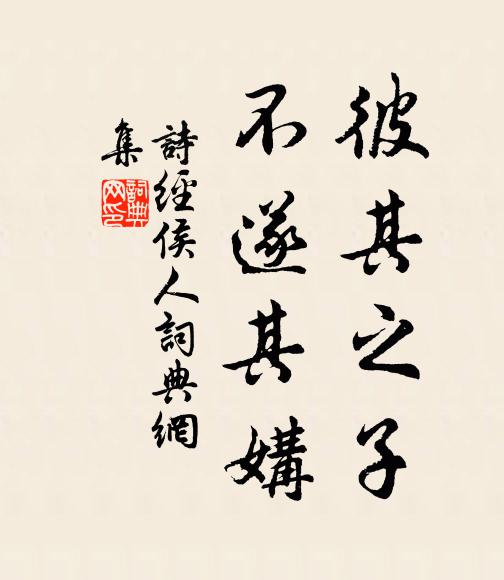 彼其之子
不遂其媾
詩經侯人詞典網
集
詞典
网印